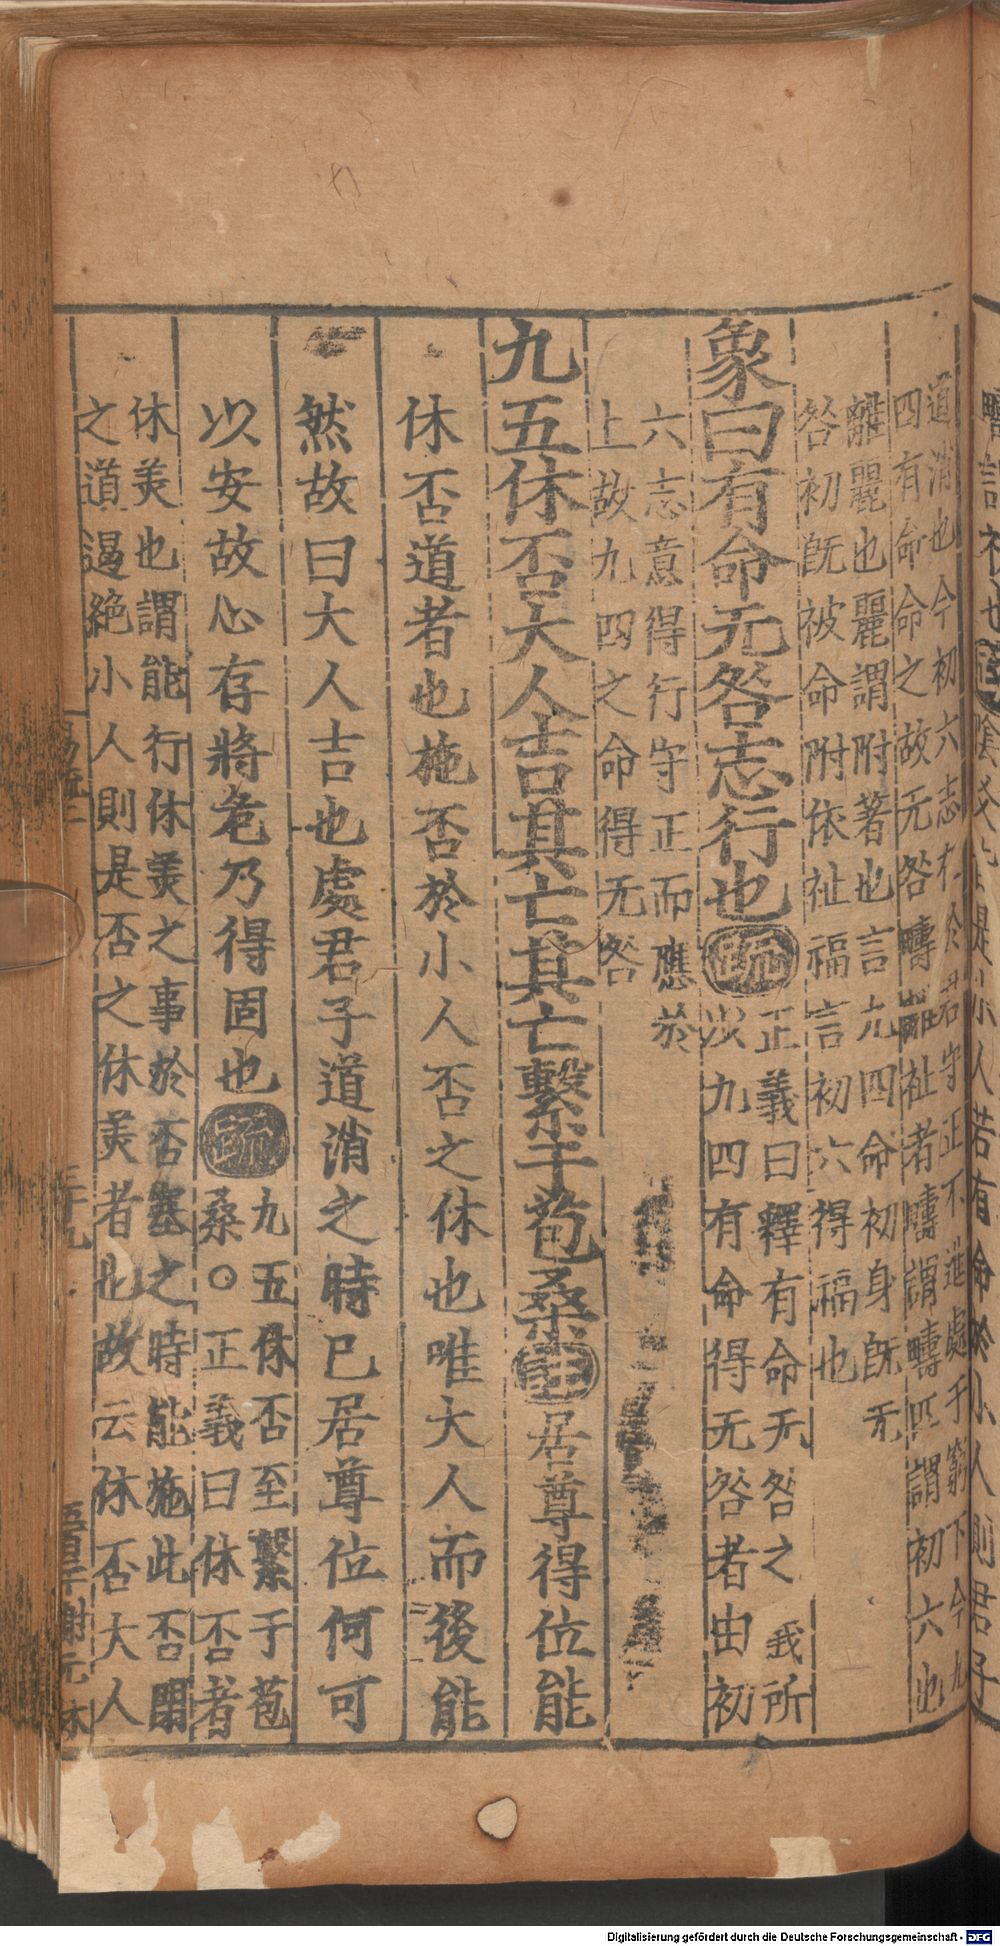 道消也今初六志在於君守正不進處于窮下今九
四有命命之故无咎疇離祉者疇謂疇匹謂初六也
離麗也麗謂附著也言九四命初身既无
咎初既被命附依祉福言初六得福也
象曰有命无咎志行也疏正義曰釋有命无咎之我所
以九四有命得无咎者由初
六志意得行守正而應於
上故九四之命得无咎
九五休否大人吉其亡其亡繫于苞桑注居尊得位能
休否道者也施否於小人否之休也唯大人而後能
然故曰大人吉也處君子道消之時已居尊位何可
以安故心存將危乃得固也疏九五休否至繫于苞
桑○正義曰休否者
休美也謂能行休美之事於否塞之時能施此否閉
之道遏絕小人則是否之休美者也故云休否大人
易疏二
三十九
謝元林
Digitalisierung gefördert durch die Deutsche Forschungsgemeinschaft - DFG